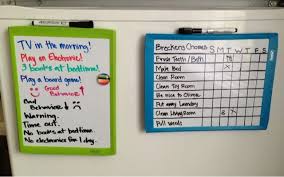 TV in the morning!
Play on Electronic!
3 books at bedtime!
Play a board game!
Good
Behavior
Bad
Behavior
Time out
No books at bedtime.
No electronics for 1 day.
Breckens Chores S M T W T F S
Brush Teeth / Bath
Make Bed
Clean Room
Clean Toy Room
Be nice to
Put away Laundry
Clean Living Room
Pull weeds